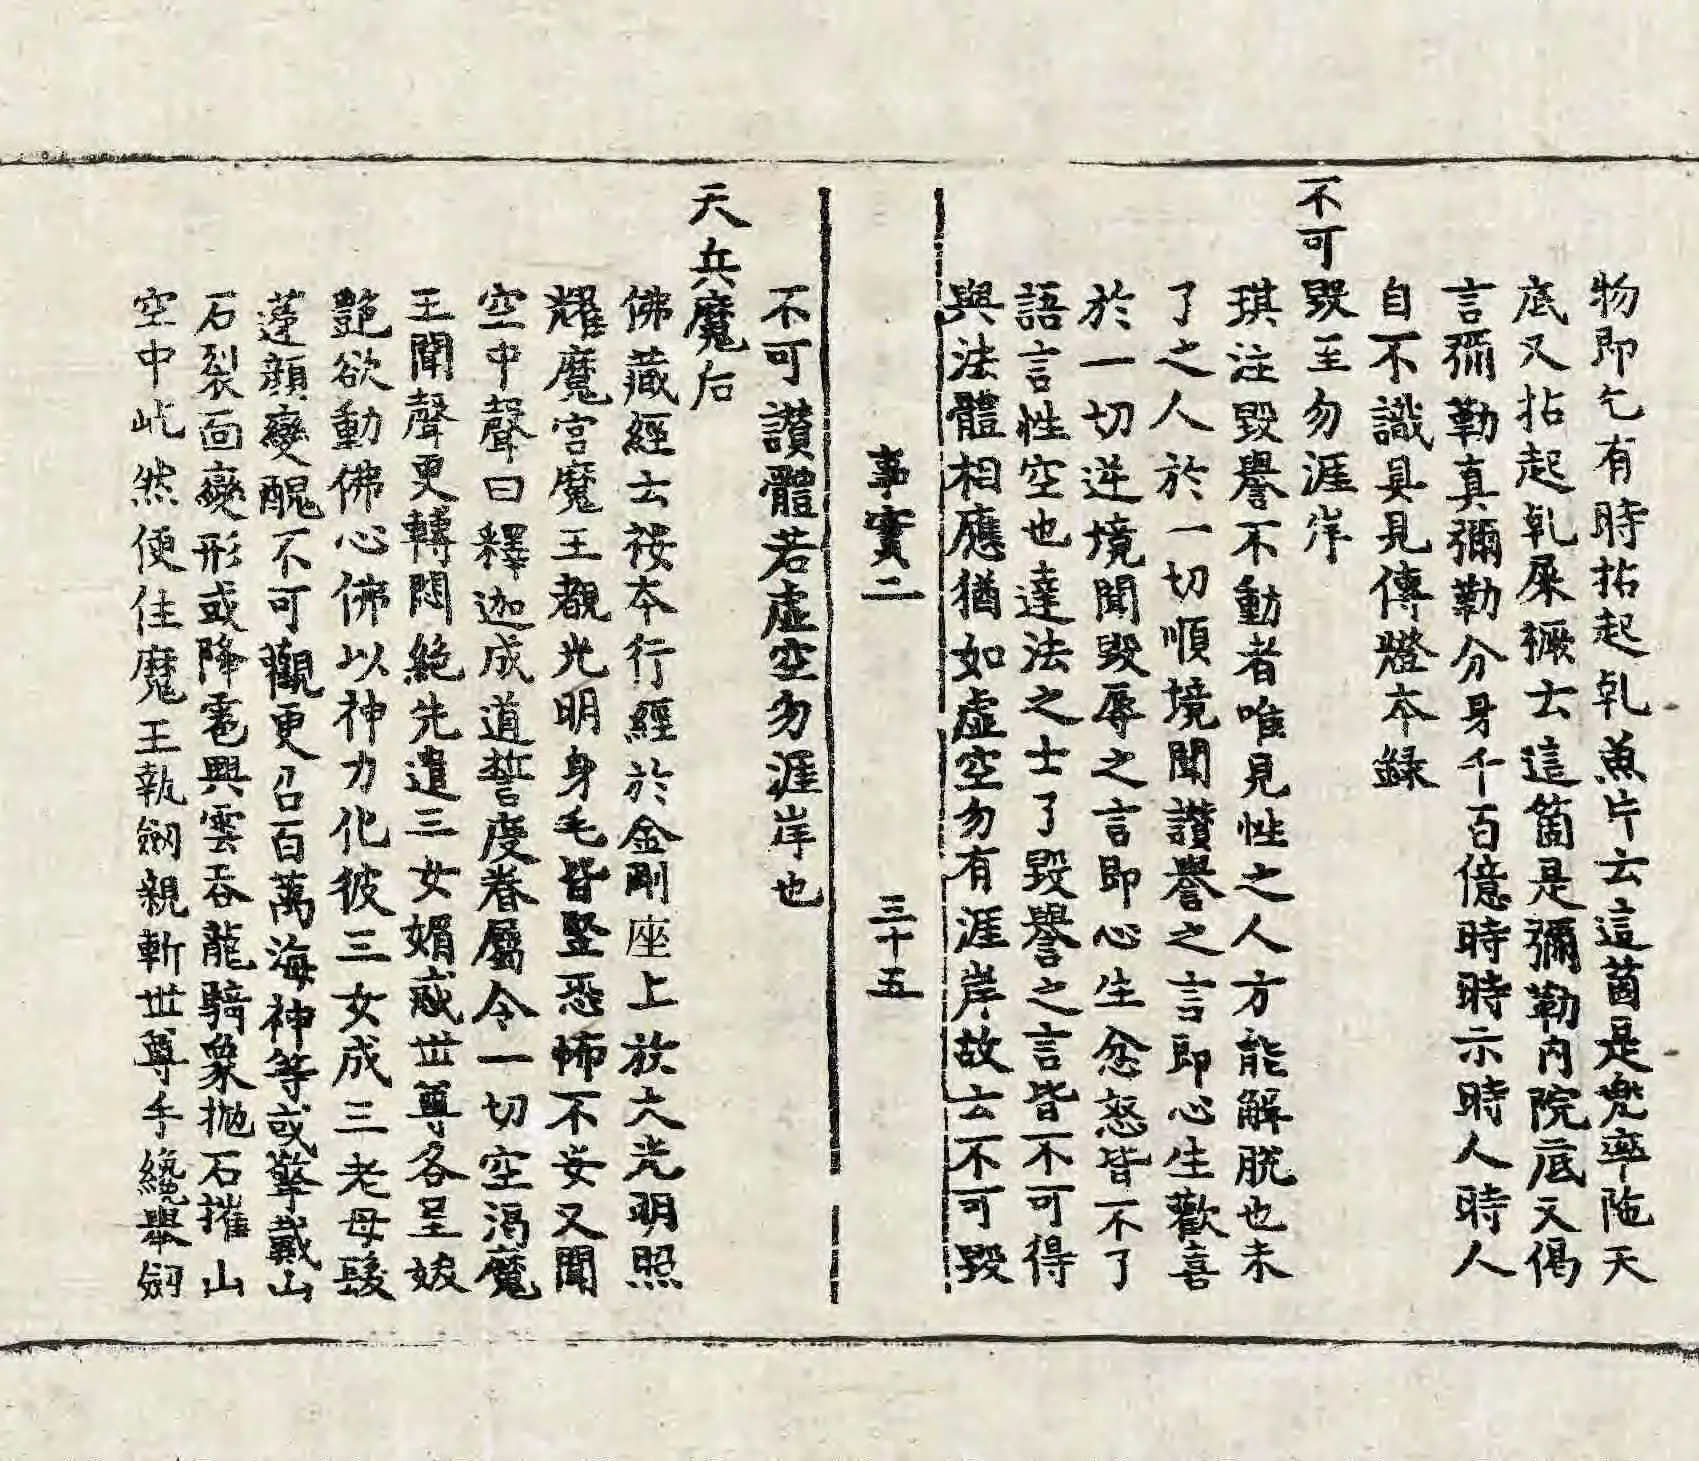 物即乞有時拈起乹魚片云這箇是兠率陁天
底又拈起乹屎橛士這箇是彌勒内院底又偈
言彌勒真彌勒分身千百億時時示時人時時人
自不識具見傳燈夲録
不可毀至勿涯岸
琪注毀譽不動者唯見性之人方能解脫也未
了之人於一切順境聞讃譽之言即心生歡喜
於一切逆境聞毀辱之言即心生忿怒皆不了
語言言性空也達法之士了毀譽之言皆不可得
與法體相應猶如虛空勿有涯岸故云不可毀
事實二 三十五
不可讃體若虛空勿涯岸也
天兵魔后
佛藏經云 夲行經於金剛座上放大光明照
耀魔宮魔王覩光明身毛皆竪恐怖不安又聞
空中聲曰釋迦成道誓度眷屬令一切空渴魔
王聞聲更轉悶絶先遣三女媚惑世尊各呈
艶欲動佛心佛以神力化彼三女成三老母髮
蓬顔變醜不可觀更召百萬海神等或擎戴山
石裂面變形或降雹興雲吞龍騎象抛石摧山
空中屹然便住魔王執劒親斬世尊手纔舉劒